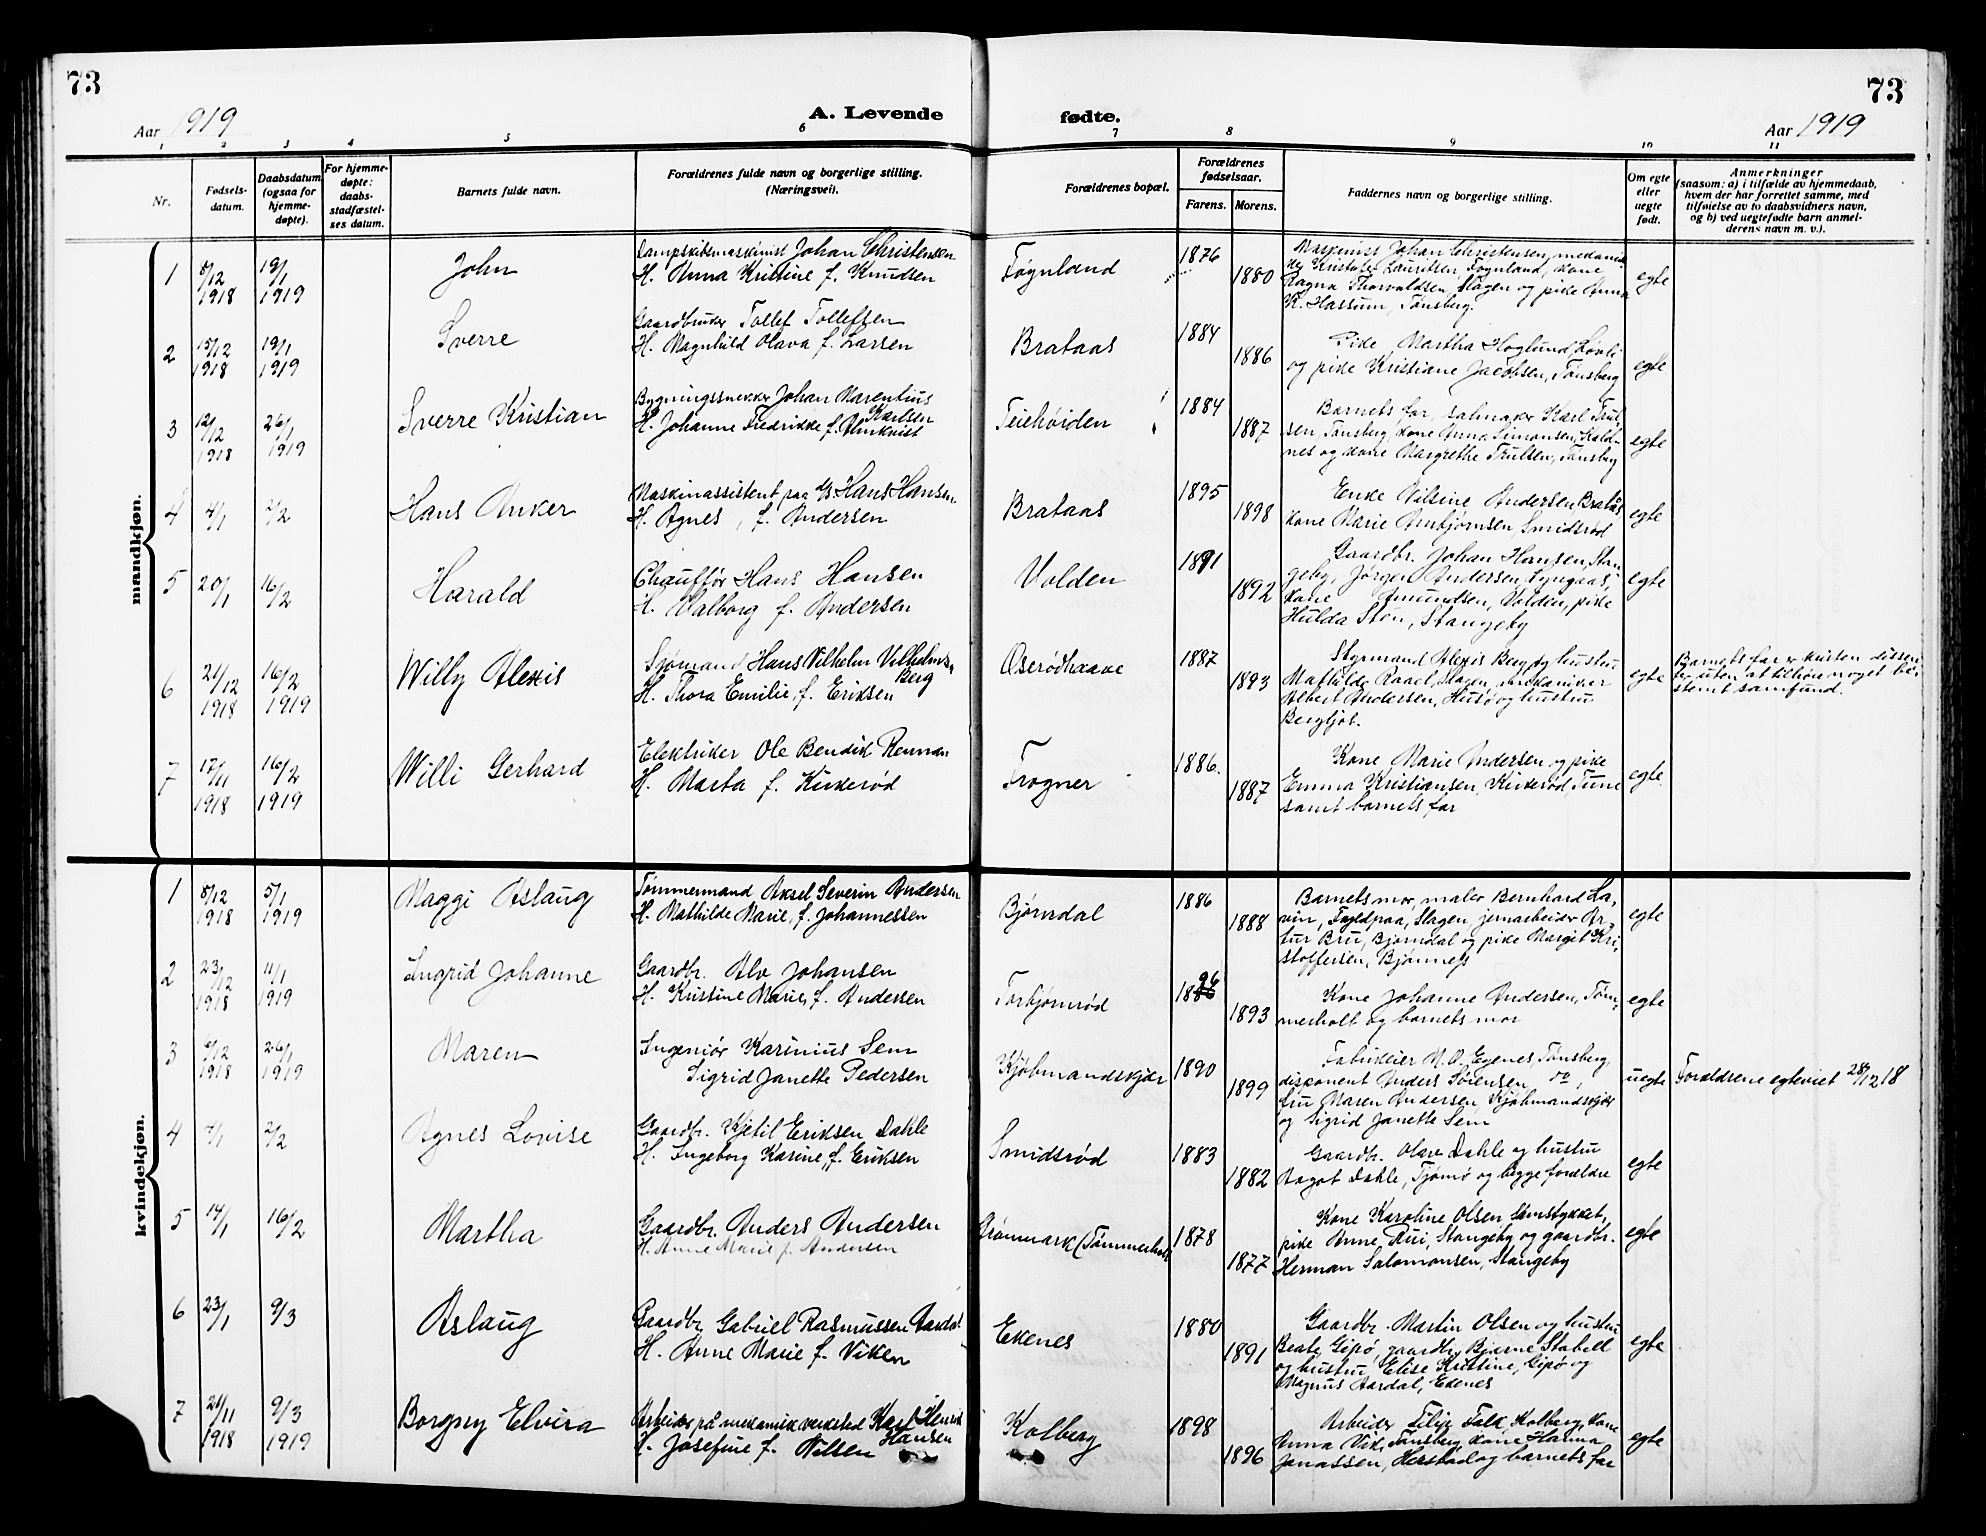 73
73
Aar 1919
A. Levende
fødte.
Aar 1919
1 2 3 4 5 6 7 8 9 10 11
Nr.
Fødsels-
datum.
Daabsdatum
(ogsaa for
hjemme-
døpte).
For hjemme-
døpte:
daabs-
stadfæstel-
ses datum.
Barnets fulde navn.
Forældrenes fulde navn og borgerlige stilling.
(Næringsvei).
Forældrenes bopæl.
Forældrenes
fødselsaar.
Farens. Morens.
Faddernes navn og borgerlige stilling.
Om egte
eller
uegte
født.
Anmerkninger
(saasom: a) i tilfælde av hjemmedaab,
hvem der har forrettet samme, med
tilføielse av to daabsvidners navn,
og b) ved uegtefødte barn anmel-
derens navn m. v.).
mandkjøn.
1 8/12 1918 19/1 1919 John
Dampskibsmaskinist Johan Christensen
H. Anna Kristine f. Knudsen
Føynland 1876 1880
Maskinist Johan Christensen, mekani-
ker Kristofer Lauritsen, Føynland, kone
Ragna Thorvaldsen, Slagen og pike Anna
K. Hassum, Tønsberg.
egte
2 15/12 1918 19/1 1919 Sverre
Gaardbruker Tollef Tollefsen
H. Magnhild Olava f. Larsen
Brataas 1884 1886
Pike Martha Høglund, Løvli
og pike Kristiane Jacobsen, Tønsberg
egte
3 12/12 1918 26/1 1919 Sverre Kristian
Bygningssnekker Johan Marentius
Karlsen
H. Johanne Fredrikke f. Almkvist
Teiehøiden 1884 1887
Barnets far, salmaker Karl Trul-
sen, Tønsberg, kone Anna Simonsen, Kald-
nes og kone Margrethe Trulsen, Tønsberg
egte
4 4/1 2/2 Hans Anker
Maskinassistent paa Hans Hansen
H. Agnes, f. Andersen
Brataas 1895 1898
Enke Nilsine Andersen, Bratås
kone Marie Arnbjørnsen Smidsrød
egte
5 20/1 16/2 Harald
Chauffør Hans Hansen
H. Valborg f. Andersen
Volden 1891 1892
Gaardbr. Johan Hansen, Stan-
geby, Jørgen Andersen, Lyngaas,
kone Amundsen, Volden, pike
Hulda Sten, Stangeby
egte
6 21/12 1918 16/2 1919 Willy Alexis
Sjømand Hans Vilhelm Vilhelms.
Berg
H. Thora Emilie, f. Eriksen
Oserødhaave 1887 1893
Styrmand Alexis Berg og hustru
Mathilde Raael, Slagen, mekaniker
Albert Andersen, Husø og hustru
Bergljot.
egte
Barnets far er kristen dissen-
ter uten at tilhøre noget be-
stemt samfund.
7 17/11 1918 16/2 1919 Willi Gerhard
Elektriker Ole Bendik Renman
H. Marta f. Kirkerød
Trogner 1886. 1887
Kone Marie Andersen og pike
Emma Kristiansen, Kirkerød, Tune
samt barnets far
egte
kvindekjøn.
1 8/12 1918 5/1 1919 Maggi Aslaug
Tømmermand Aksel Severin Andersen
H. Mathilde Marie, f. Johannessen
Bjørndal 1886 1888
Barnets mor, maler Bernhard La-
vin, Slagen, jernarbeider Ar-
tur Bru, Bjørndal og pike Margit Kri-
stoffersen, Bjønnes
egte
2 23/12 1918 11/1 1919 Ingrid Johanne
Gaardbr. Alv Johansen
H. Kristine Marie, f. Andersen
Torbjørnrød 1896 1893
Kone Johanne Andersen, Tøm-
merholt og barnets mor
egte
3 6/12 1918 26/1 1919 Maren
Ingeniør Karinius Sem
Sigrid Janette Pedersen
Kjøbmandskjær 1890 1899
Fabrikeier M. O. Egenes, Tønsberg,
disponent Anders Sørensen do,
fru Maren Andersen, Kjøbmandskjær
og Sigrid Janette Sem
uegte
Forældrene egteviet 28/12 18
4 7/1 2/2 Agnes Lovise
Gaardbr. Kjetil Eriksen Dahle
H. Ingeborg Karine, f. Eriksen
Smidsrød 1883 1882
Gaardbr. Olav Dahle og hustru
Aagot Dahle, Tjømø og begge forældre
egte
5 14/1 16/2 Martha
Gaardbr. Anders Andersen
H. Anne Marie f. Andersen
Grønmark (Tømmerholt) 1878 1877
Kone Karoline Olsen Skinstykket,
pike Anne Rui, Stangeby og gaardbr.
Herman Salomonsen, Stangeby
egte
6 23/1 9/3 Aslaug
Gaardbr. Gabriel Rasmussen Aardal
H. Anne Marie f. Viken
Ekenes 1880 1891
Gaardbr. Martin Olsen og hustru
Beate, Gipø, gaardbr. Bjarne Stabell
og hustru Elise Kristine, Gipø og
Magnus Aardal, Ekenes
egte
7 21/11 1918 9/3 1919 Borgny Elvira
Arbeider på mekanisk verksted Karl Henrik
Hansen
H. Josefine f. Nilsen
Kolberg 1898 1896
Arbeider Filip Falk, Kolberg, kone
Anna Vik, Tønsberg, kone Hanna
Jonassen, Herstad og barnets far
egte